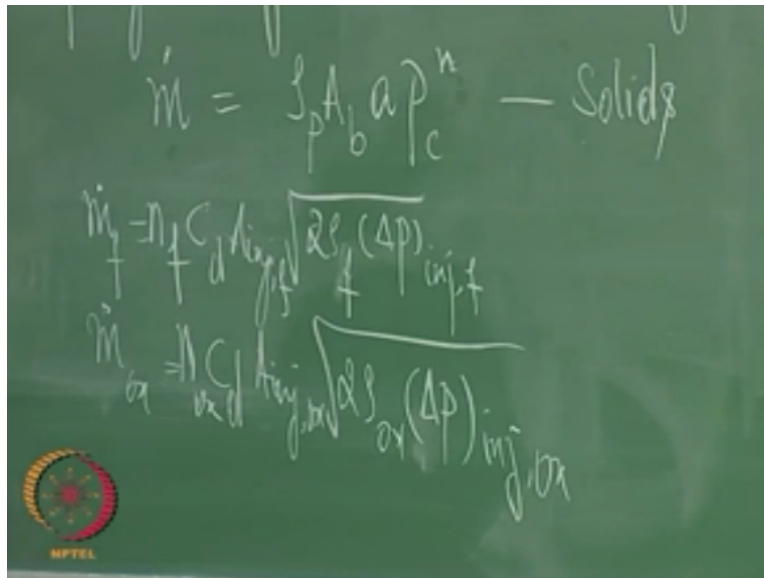 ṁ = ρ_p A_b a p_c^n — Solids
ṁ_f = n_f C_d A_inj,f √(2ρ_f (Δp)_inj,f)
ṁ_ox = n_ox C_d A_inj,ox √(2ρ_ox (Δp)_inj,ox)
NPTEL